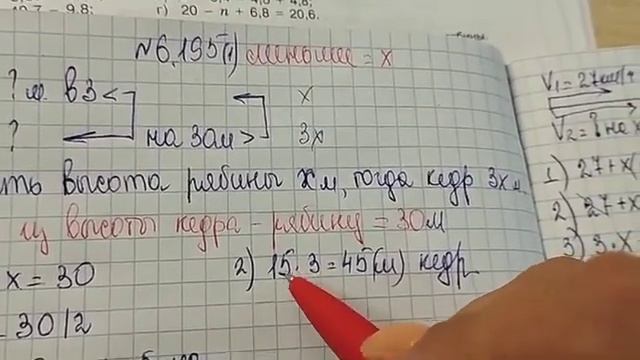 г) 20 − n + 6,8 = 20,6.
№6.195(1) меньшее = x
? м. в 3 < x
? на 30м > 3x
ть высота рябины x м, тогда кедр 3x м.
цу высоты кедра - рябину = 30м
x = 30
2) 15 · 3 = 45(м) кедр
30/2
V₁ = 27км/ч
V₂ = ? на
1) 27+x(
2) 27+x
3) 3·x